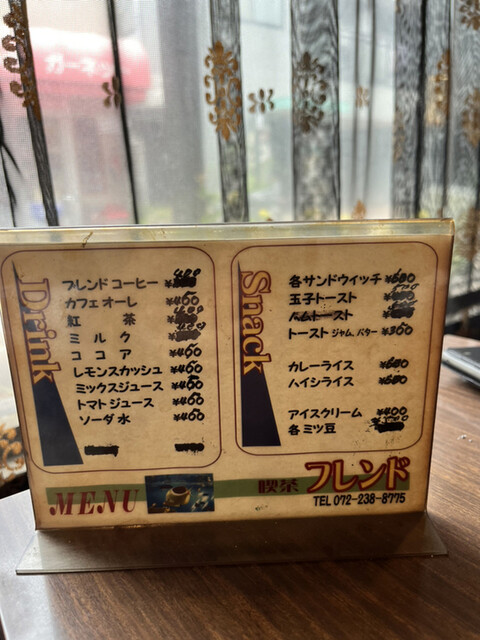 ガーネッ
Drink
ブレンドコーヒー
カフェオーレ ¥460
紅 茶
ミルク
ココア ¥460
レモンスカッシュ ¥460
ミックスジュース ¥460
トマトジュース ¥460
ソーダ水 ¥460
Snack
各サンドウィッチ ¥600
玉子トースト
ハムトースト
トースト ジャム、バター ¥360
カレーライス ¥600
ハイシライス ¥600
アイスクリーム ¥400
各ミツ豆
MENU
喫茶 フレンド
TEL 072-238-8775